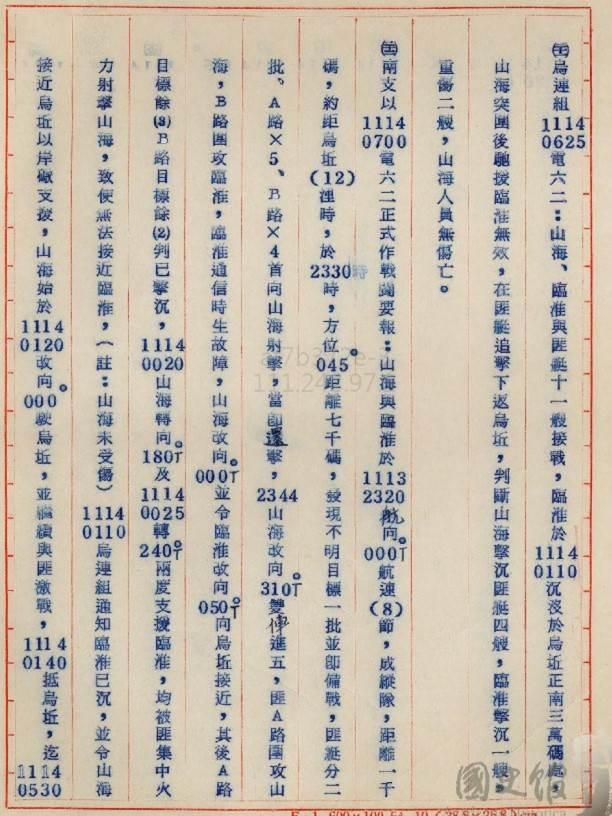 ㈩烏連組1114 0625電六二：山海、臨淮與匪艇十一艘接戰，臨淮於1114 0110沉沒於烏坵正南三萬碼處，
山海突圍後馳援臨淮無效，在匪艇追擊下返烏坵，判斷山海擊沉匪艇四艘，臨淮擊沉一艘，
重傷二艘，山海人員無傷亡。
南支以1114 0700電六二正式作戰簡要報：山海與臨淮於1113 2320航向000°T航速(8)節，成縱隊，距離一千
碼，約距烏坵(12)浬時，於2330時，方位045°距離七千碼，發現不明目標一批並即備戰，匪艇分二
批、A路×5、B路×4首向山海射擊，當即還擊，2344山海改向310°T雙俥進五，匪A路圍攻山
海，B路圍攻臨淮，臨淮通信時生故障，山海改向000°T並令臨淮改向050°T向烏坵接近，其後A路
目標餘(3)B路目標餘(2)判已擊沉，1114 0020山海轉向180°T及1114 0025轉240°T兩度支援臨淮，均被匪集中火
力射擊山海，致使無法接近臨淮，（註：山海未受傷）1114 0110烏連組通知臨淮已沉，並令山海
接近烏坵以岸砲支援，山海始於1114 0120改向000°駛烏坵，並繼續與匪激戰，1114 0140抵烏坵，迄1114 0530
國史館